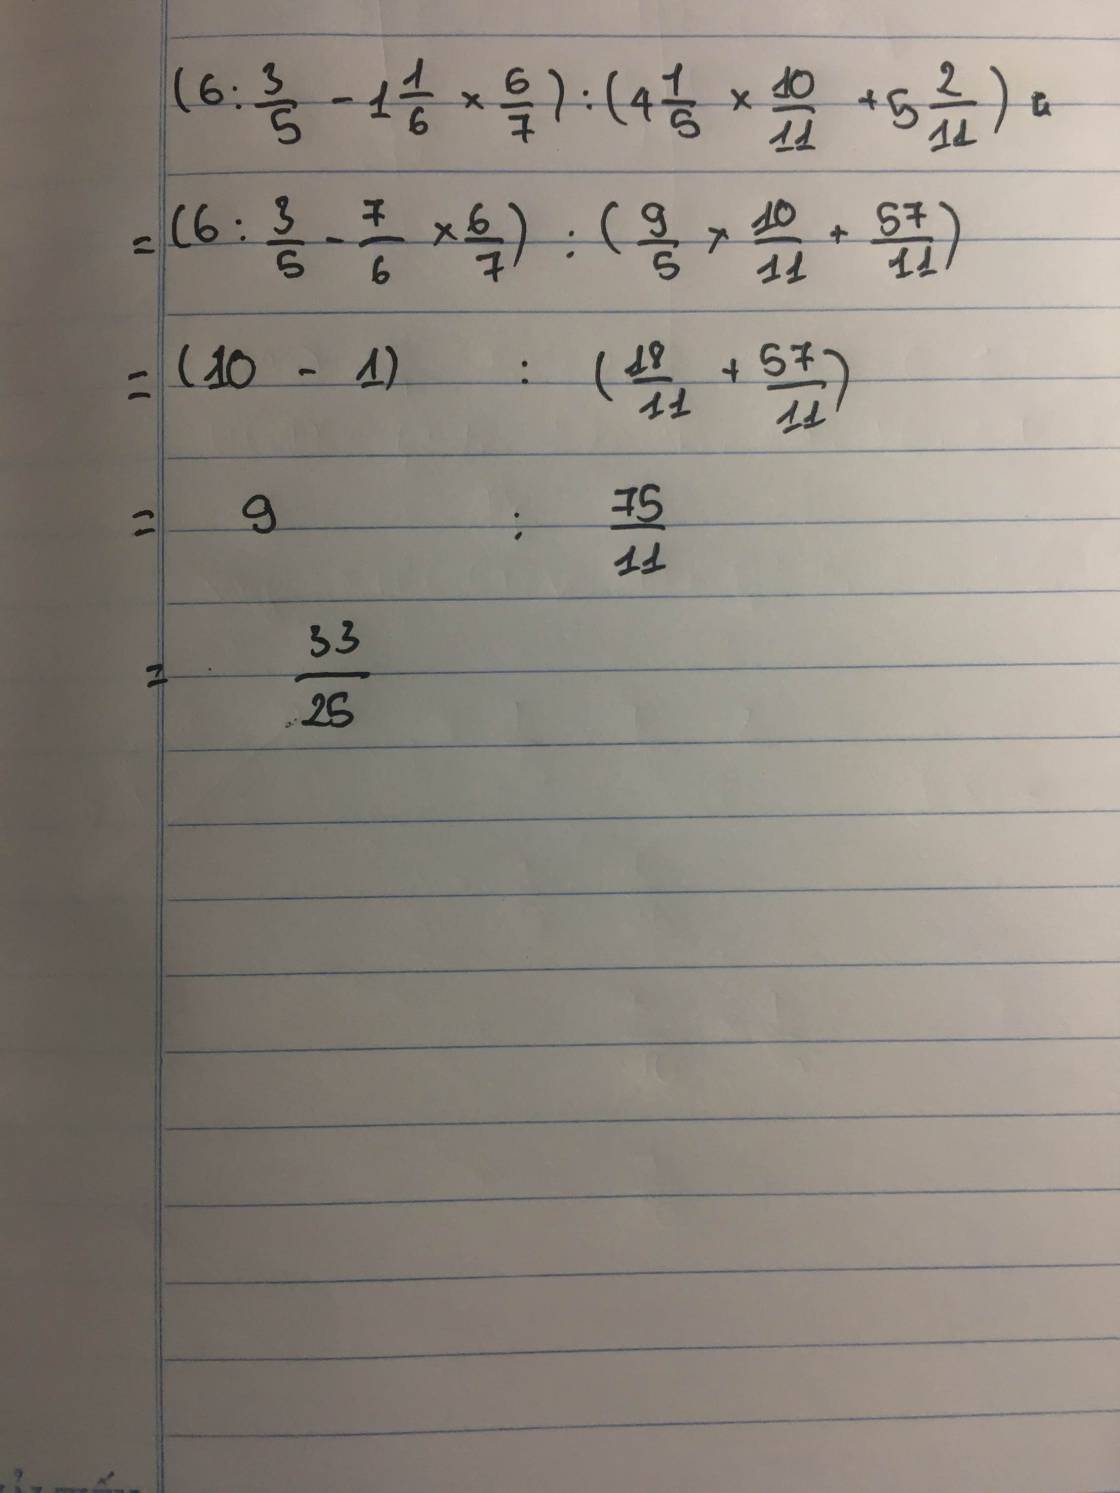 (6 : 3/5 - 1 1/6 × 6/7) : (4 1/5 × 10/11 + 5 2/11)
= (6 : 3/5 - 7/6 × 6/7) : (9/5 × 10/11 + 57/11)
= (10 - 1) : (18/11 + 57/11)
= 9 : 75/11
= 33/25